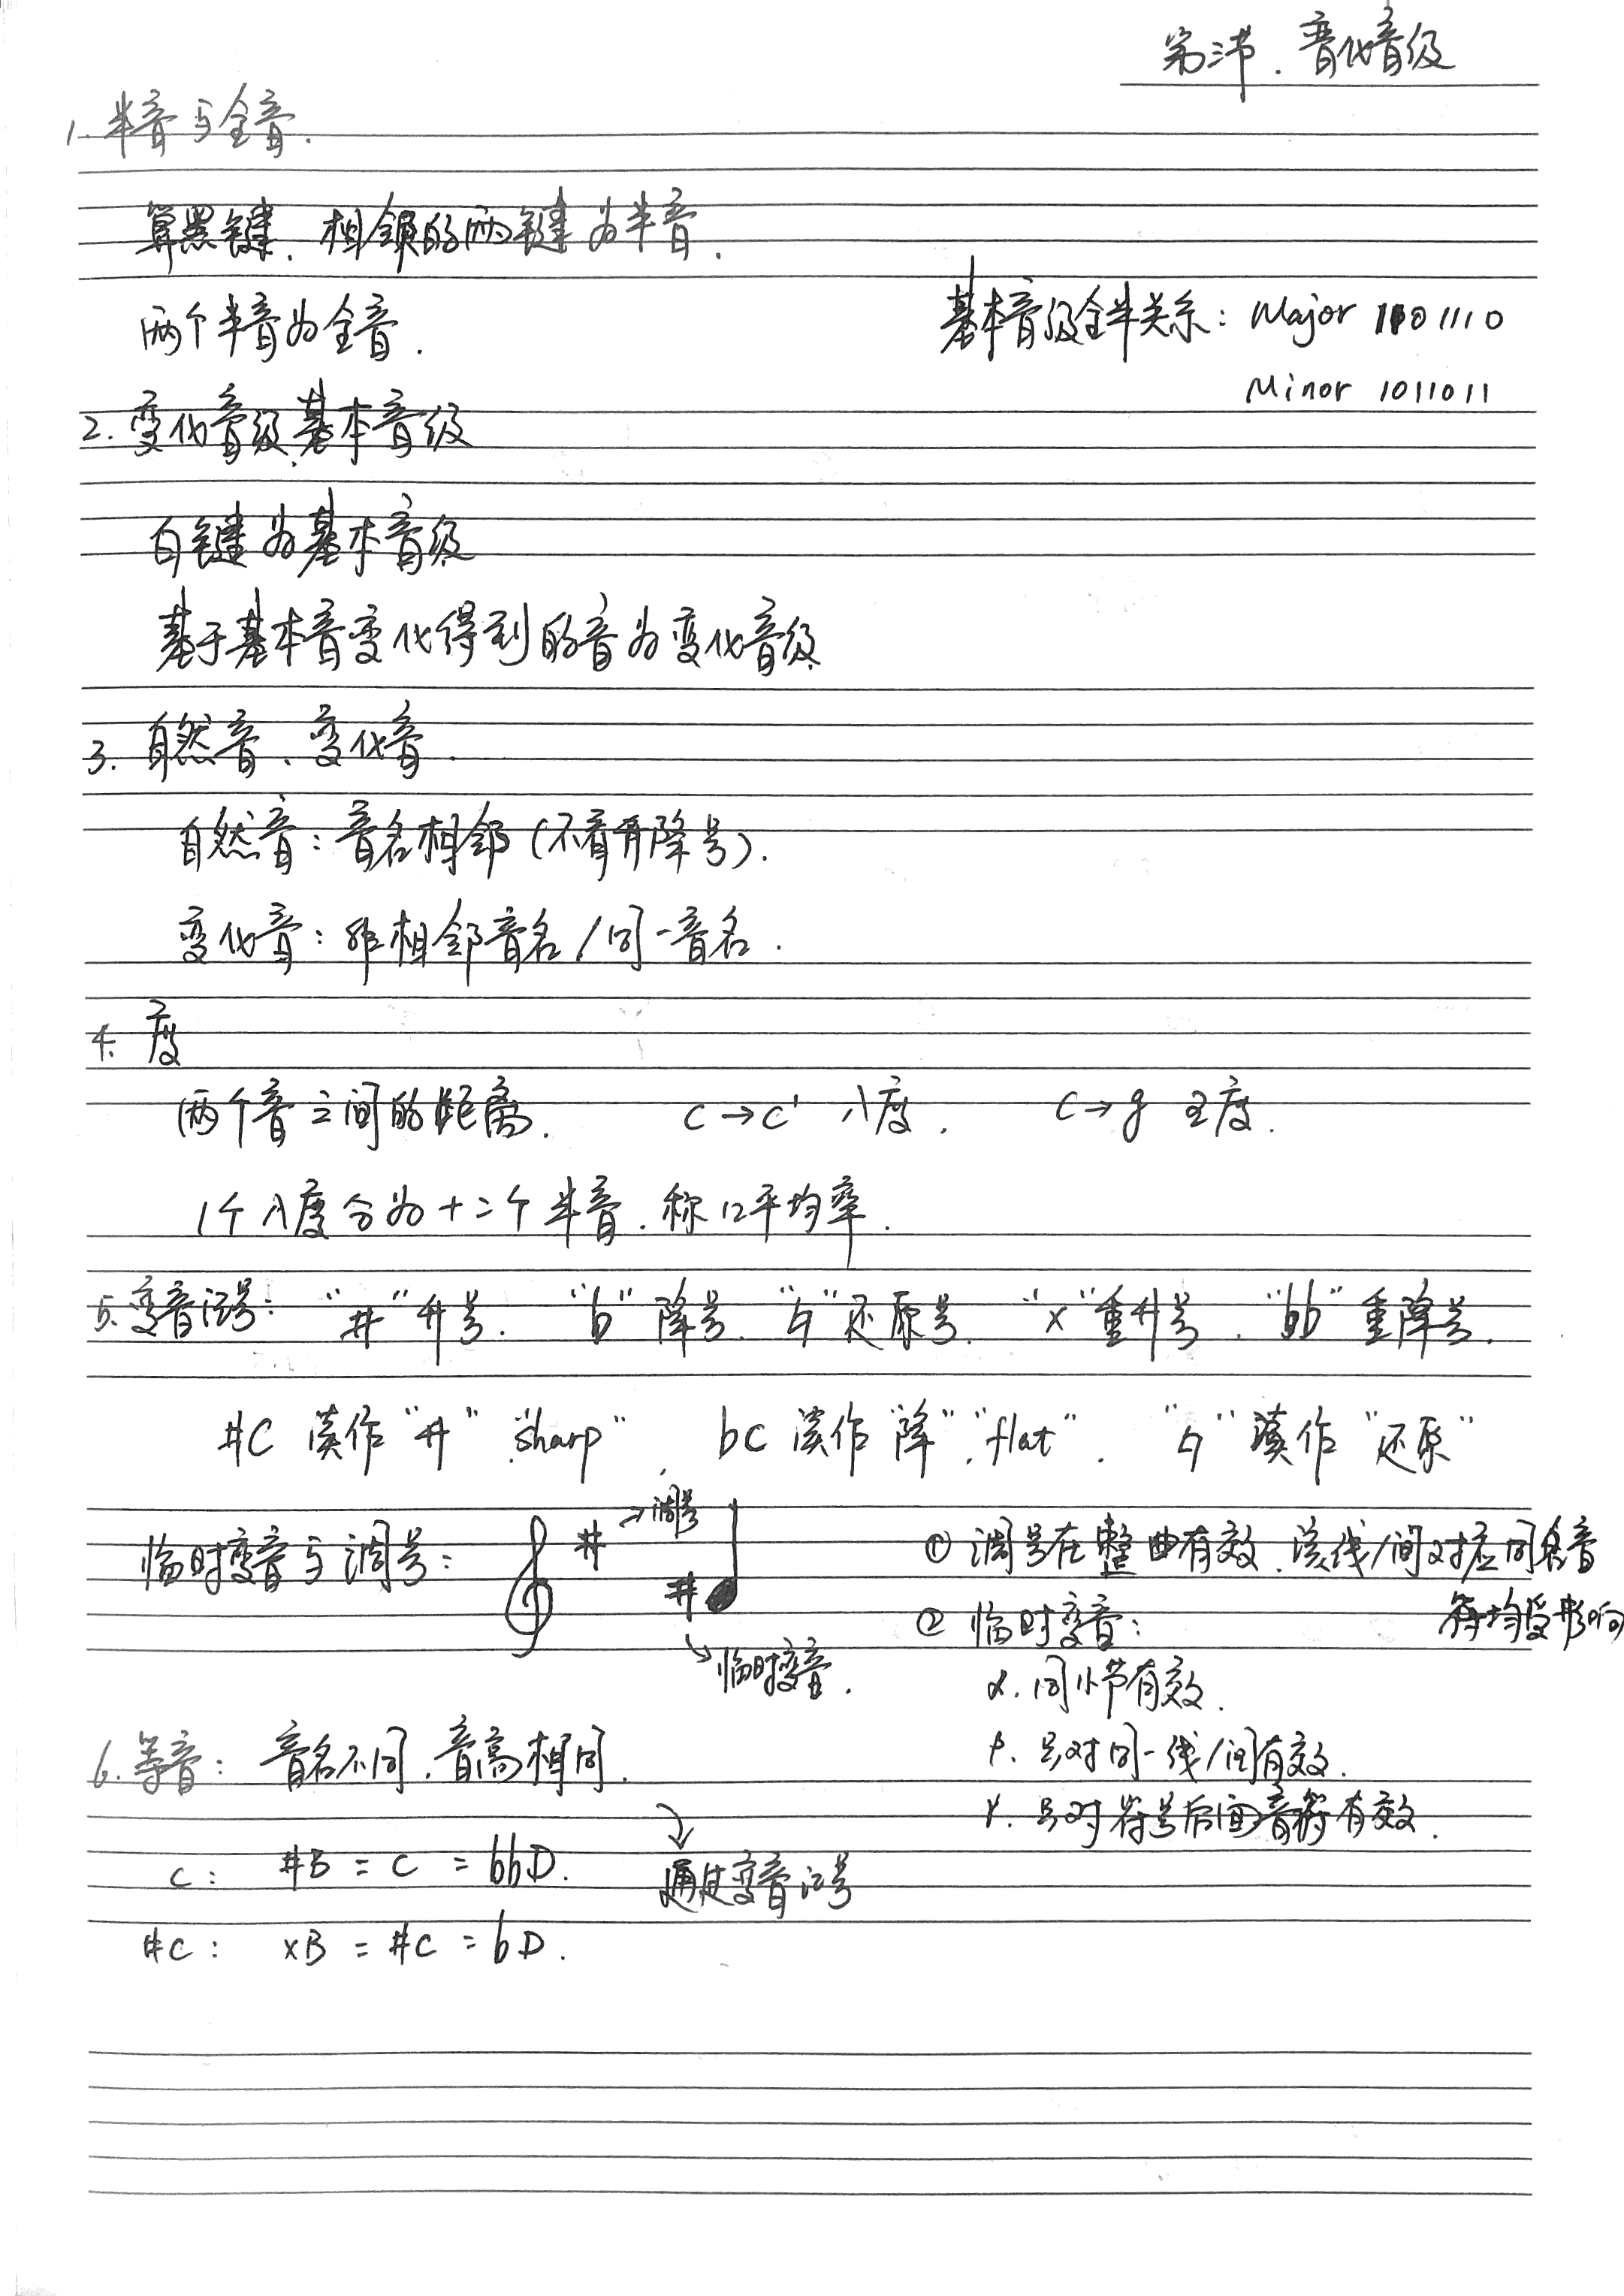 第三节. 变化音级
1. 半音与全音.
算黑键. 相鎖的两键为半音.
两个半音为全音.
基本音级全半关系: Major 1101110
Minor 1011011
2. 变化音级.基本音级
白键为基本音级
基于基本音变化得到的音为变化音级
3. 自然音、变化音.
自然音: 音名相邻 (不看升降号).
变化音: 非相邻音名 / 同一音名.
4. 度
两个音之间的距离. c→c' 八度. c→g 五度.
1个八度分为十二个半音. 称12平均率.
5. 变音记号: "#"升号. "b"降号. "♮"还原号. "×"重升号. "bb"重降号.
#C 读作"升" "sharp", bC 读作"降", "flat". "♮"读作"还原"
临时变音与调号:
#
→调号
#
→临时变音.
① 调号在整曲有效. 该线/间对应同名音
符均受影响
② 临时变音:
α. 同小节有效.
β. 只对同一线/间有效.
γ. 只对符号后面音符有效.
6. 等音: 音名不同. 音高相同.
通过变音记号
C: #B = C = bbD.
#C: ×B = #C = bD.